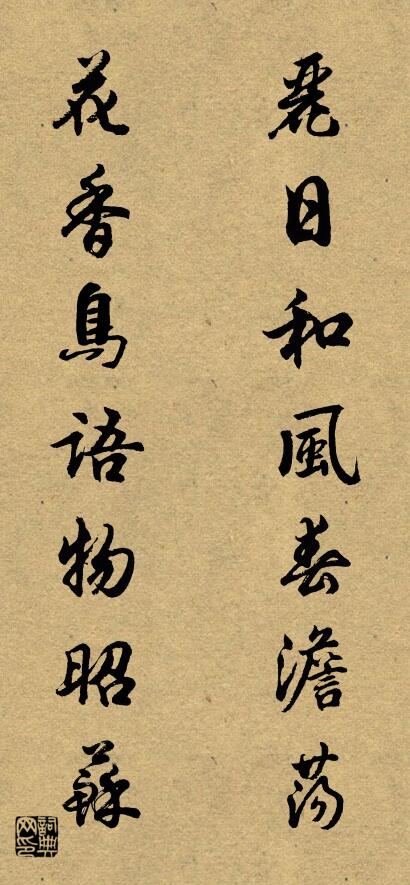 麗日和風春澹蕩
花香鳥語物昭蘇
詞典網印